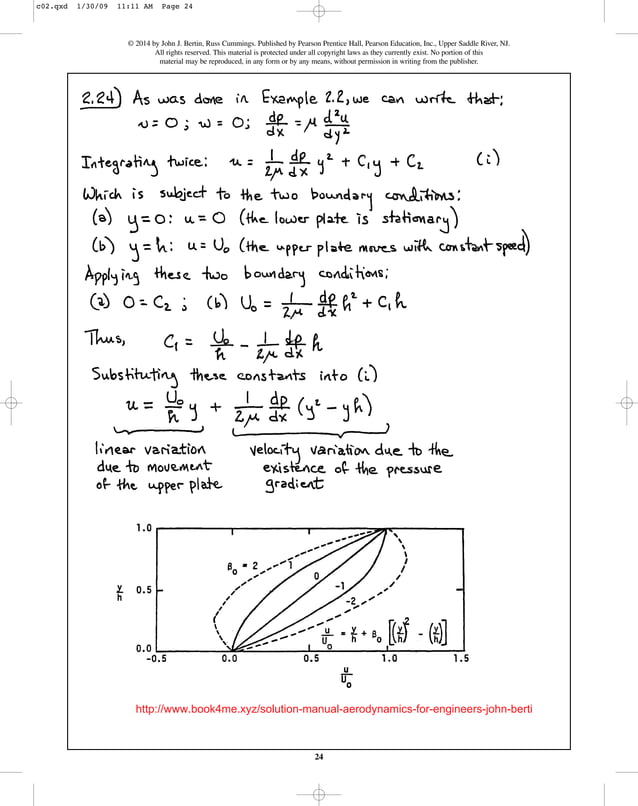 c02.qxd 1/30/09 11:11 AM Page 24
© 2014 by John J. Bertin, Russ Cummings. Published by Pearson Prentice Hall, Pearson Education, Inc., Upper Saddle River, NJ.
All rights reserved. This material is protected under all copyright laws as they currently exist. No portion of this
material may be reproduced, in any form or by any means, without permission in writing from the publisher.
2.24) As was done in Example 2.2, we can write that:
v = 0 ; w = 0 ; dp/dx = μ d²u/dy²
Integrating twice: u = 1/2μ dp/dx y² + C₁y + C₂ (i)
Which is subject to the two boundary conditions:
(a) y = 0: u = 0 (the lower plate is stationary)
(b) y = h: u = U₀ (the upper plate moves with constant speed)
Applying these two boundary conditions:
(a) 0 = C₂ ; (b) U₀ = 1/2μ dp/dx h² + C₁h
Thus, C₁ = U₀/h - 1/2μ dp/dx h
Substituting these constants into (i)
u = U₀/h y + 1/2μ dp/dx (y² - yh)
linear variation due to movement of the upper plate
velocity variation due to the existence of the pressure gradient
1.0
B₀ = 2 1
0
-1
y/h 0.5
-2
u/U₀ = y/h + B₀ [(y/h)² - (y/h)]
0.0
-0.5 0.0 0.5 1.0 1.5
u/U₀
http://www.book4me.xyz/solution-manual-aerodynamics-for-engineers-john-berti
24